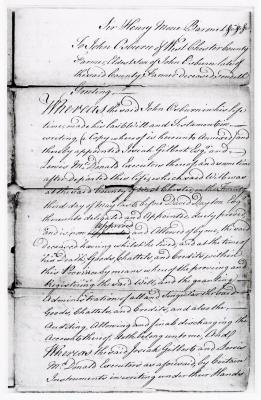 Sir Henry Moore Baronet &c &c &c
To John Osburn of West Chester County
Farmer, Eldest Son of John Osburn late of
the said County Farmer deceased, sendeth
Greeting
Whereas the said John Osburn in his life
time made his last Will and Testament in
writing (a Copy whereof is hereunto Annexed) and
thereby appointed Josiah Gilbert Esq and
James McDonald Executors thereof and sometime
after departed this life, which said Will was
at the said County of West Chester on the Twenty
third day of May last before David Dayton Esq
thereunto delegated and Appointed, duly proved
and is now Approved and Allowed of by me, the said
deceased having whilst he lived, and at the time of
his Death, Goods, Chattels, and Credits within
this Province by means whereof the proving and
Registering the said Will, and the granting
Administration of all and Singular the said
Goods, Chattels, and Credits, and also the
Auditing, Allowing and final discharging the
Account thereof, doth belong unto me, And
Whereas the said Josiah Gilbert and James
McDonald Executors as aforesaid, by Certain
Instruments in writing under their Hands